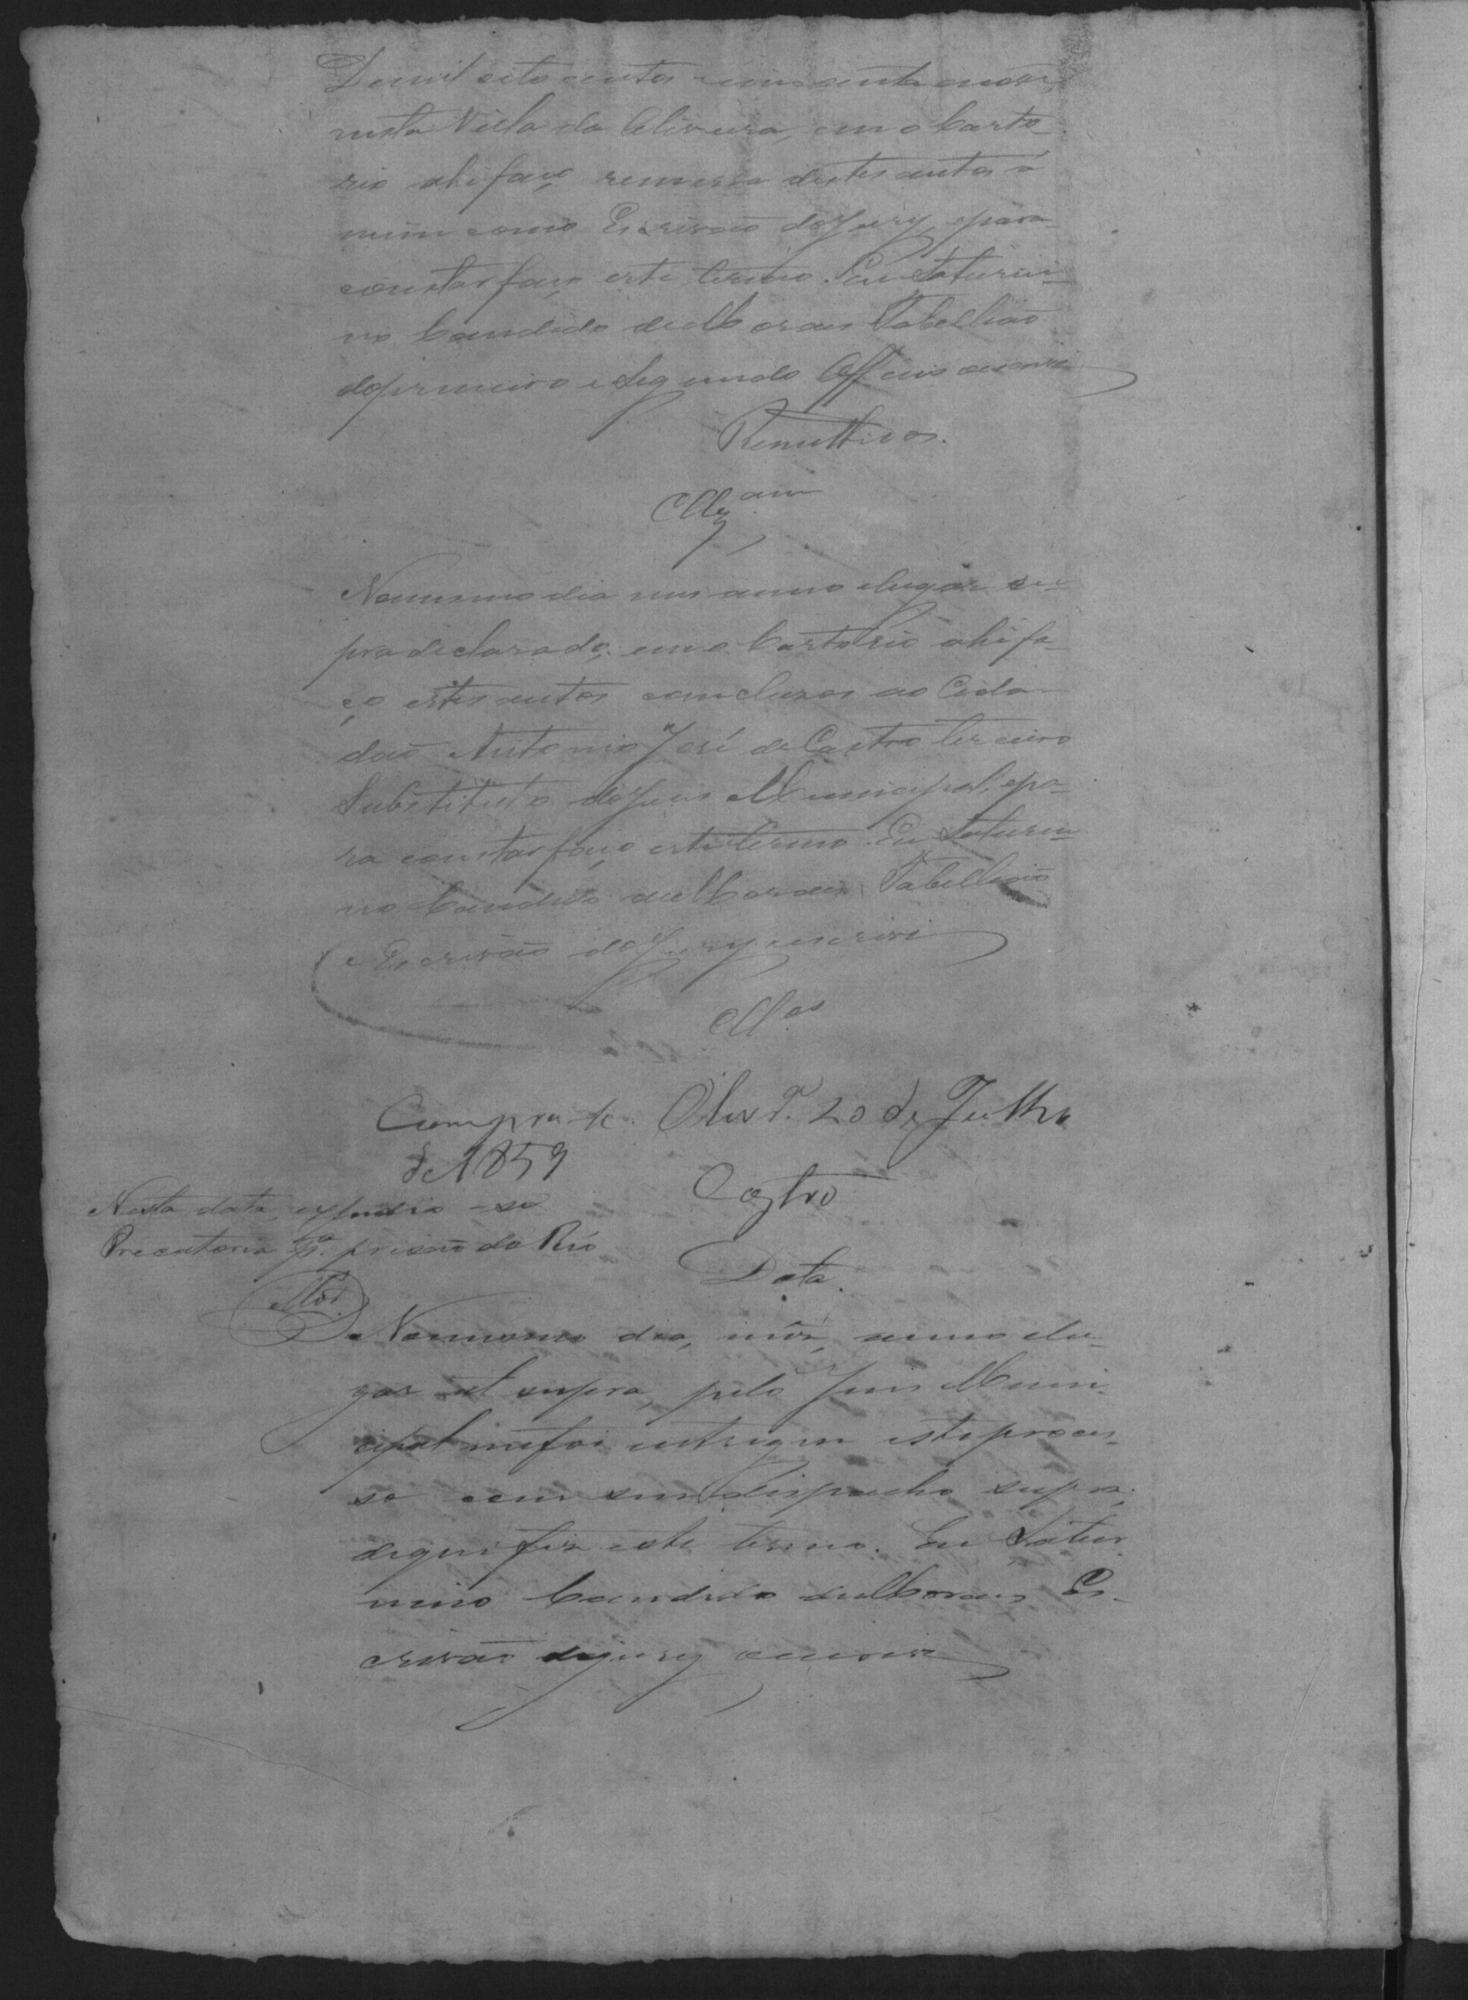 De mil oito centos e cincoenta e nove
nesta Villa da Oliveira, em o Carto-
rio ahi faço remessa destes autos á
mim como Escrivão do Jury, e para
constar faço este termo. Eu Saturni-
no Candido de Moraes Tabellião
do primeiro e Segundo Officio escrivi
Remettidos.
No mesmo dia mes anno e lugar su-
pra declarado, em o Cartorio ahi fa-
ço estes autos concluzos ao Cida-
dão Antonio José de Castro terceiro
Substituto do Juis Municipal, e pa-
ra constar faço este termo. Eu Saturni-
no Candido de Moraes Tabellião
e Escrivão do Jury escrivi
Cllos
Cumpra-se. Olivra. 20 de Julho
de 1859
Castro
Nesta data expedio-se
Precatoria pa. prisão do Réo
Mos.
Data.
No mesmo dia, mês, anno e lu-
gar ut supra, pelo Juis Muni-
cipal me foi entregue este proces-
so com seu dispacho supra,
de que fis este termo. Eu Satur
nino Candido de Moraes Es-
crivão do jury escrivi